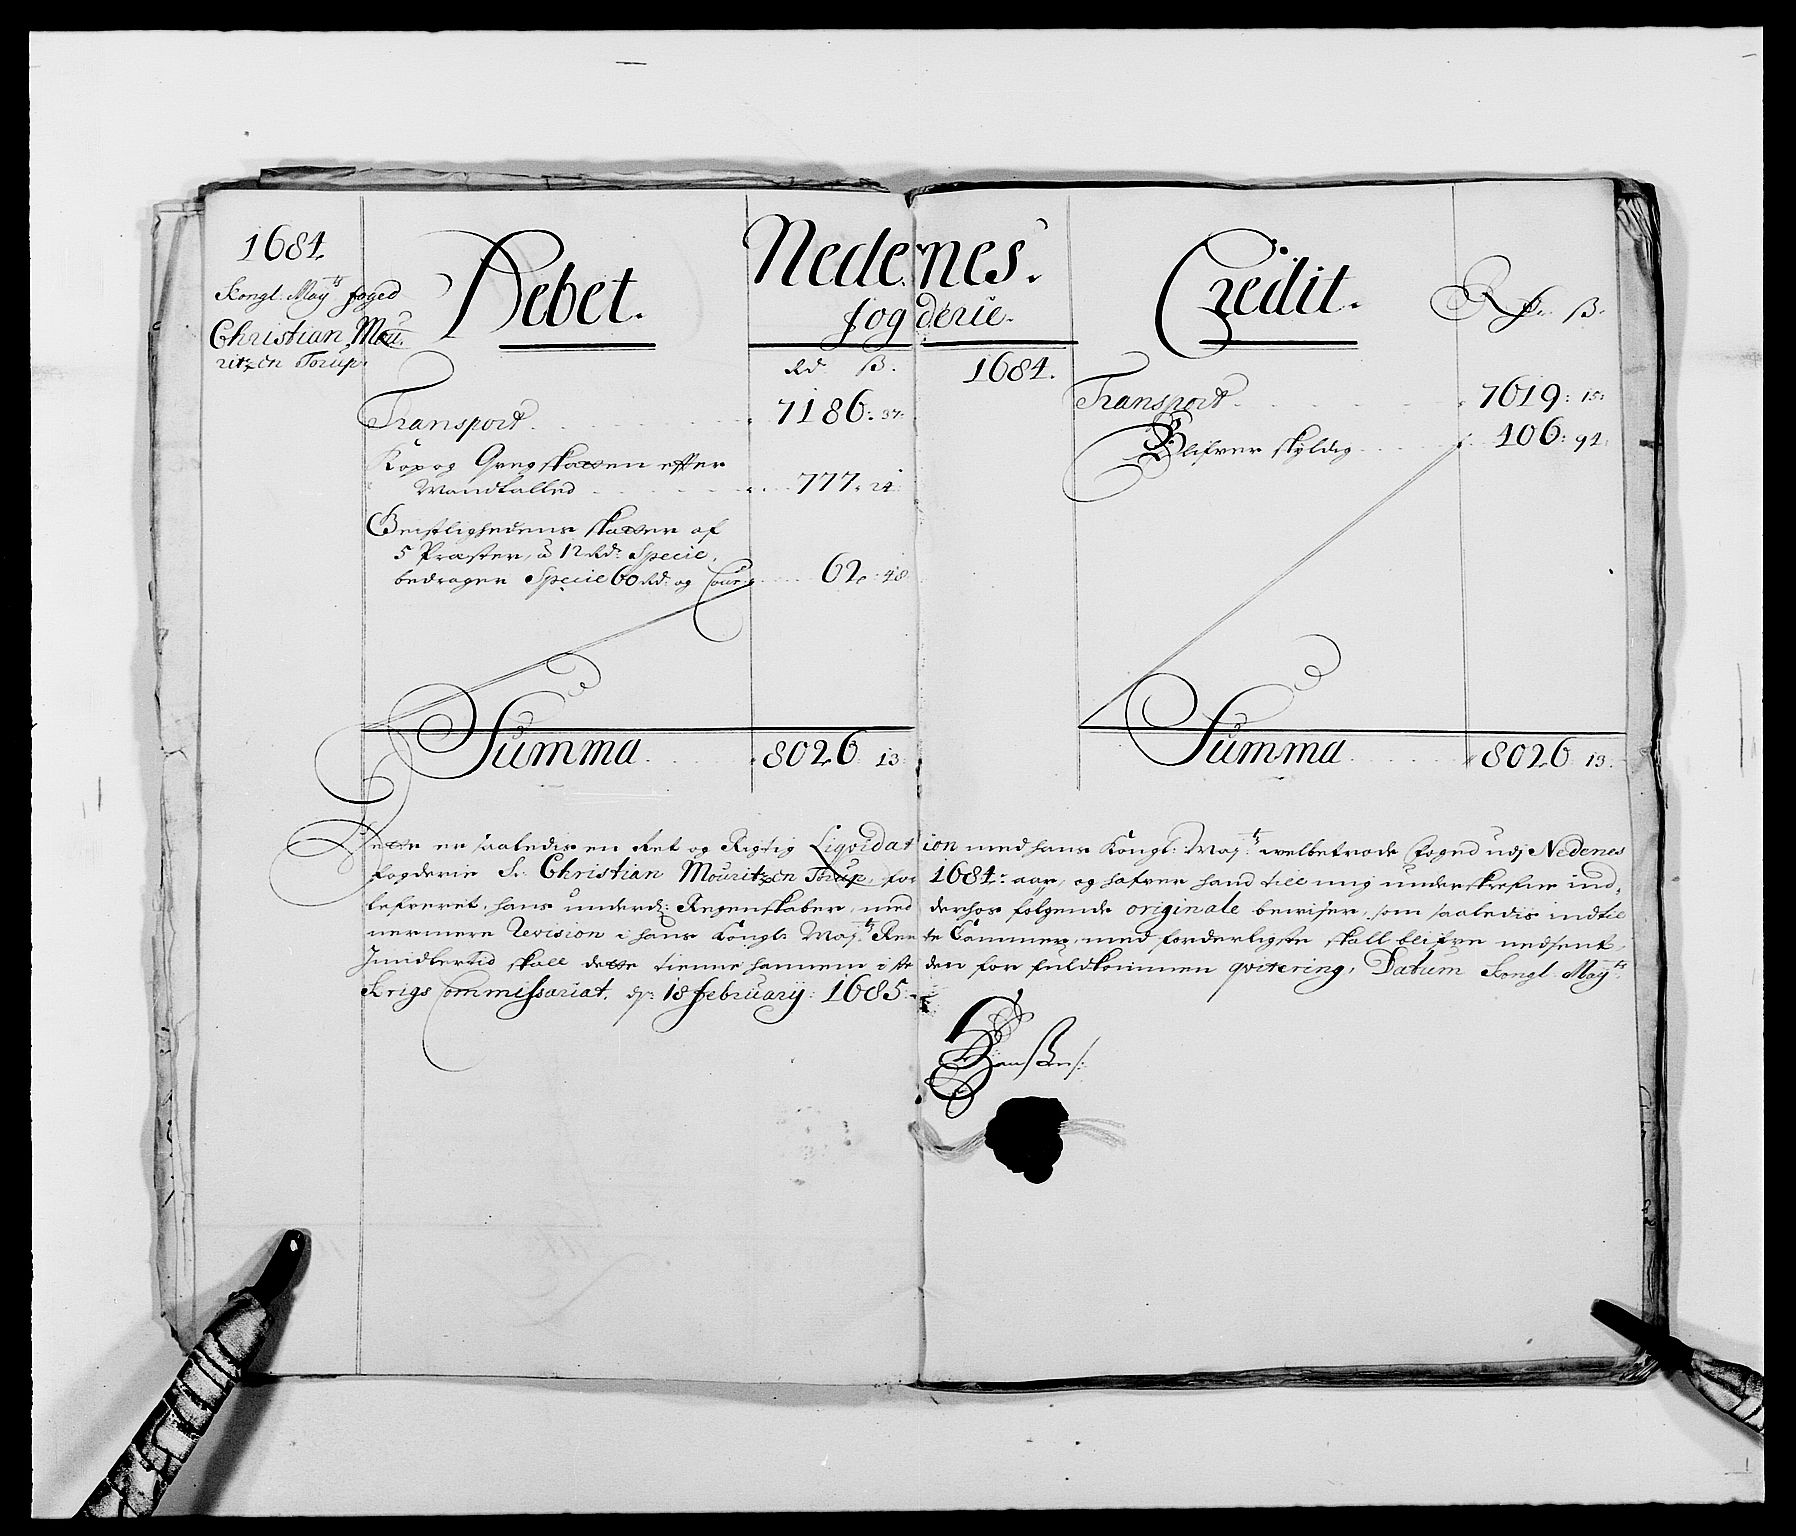 1684.
Kongl: May:ts foged
Christian Mou-
ritzen Torup.
Debet.
Nedenes.
fogderie.
Credit.
Rd. ß.
Rd. ß.
1684.
Transport 7186: 37.
Kop og Qvegskatten efter
Mandtalled 777. 24
Geistlighedens skatter af
5 Præster, à 12 Rd: Specie,
bedrager Specie 60 Rd: og Cour: 62: 48
Summa 8026 13
Transport 7619: 15:
Blifver skyldig 406: 94:
Summa 8026 13.
Dette er saaledis en Ret og Rigtig Liqvidation med hans Kongl: May:ts welbetrode foged udj Nedenes
fogderie Sr. Christian Mouritzen Torup, for 1684: aar, og hafver hand till mig underskrefne ind-
lefveret, hans underd: Regenskaber, med derhos følgende originale beviser, som saaledis indtil
nermere Revision i hans Kongl: May:ts Rente Cammer, med forderligste skall blifve nedsent,
Imidlertid skall dette tienne hannem i steden for fuldkommen qvitering, Datum Kongl: May:ts
Krigs Commissariat, d: 18 february: 1685.